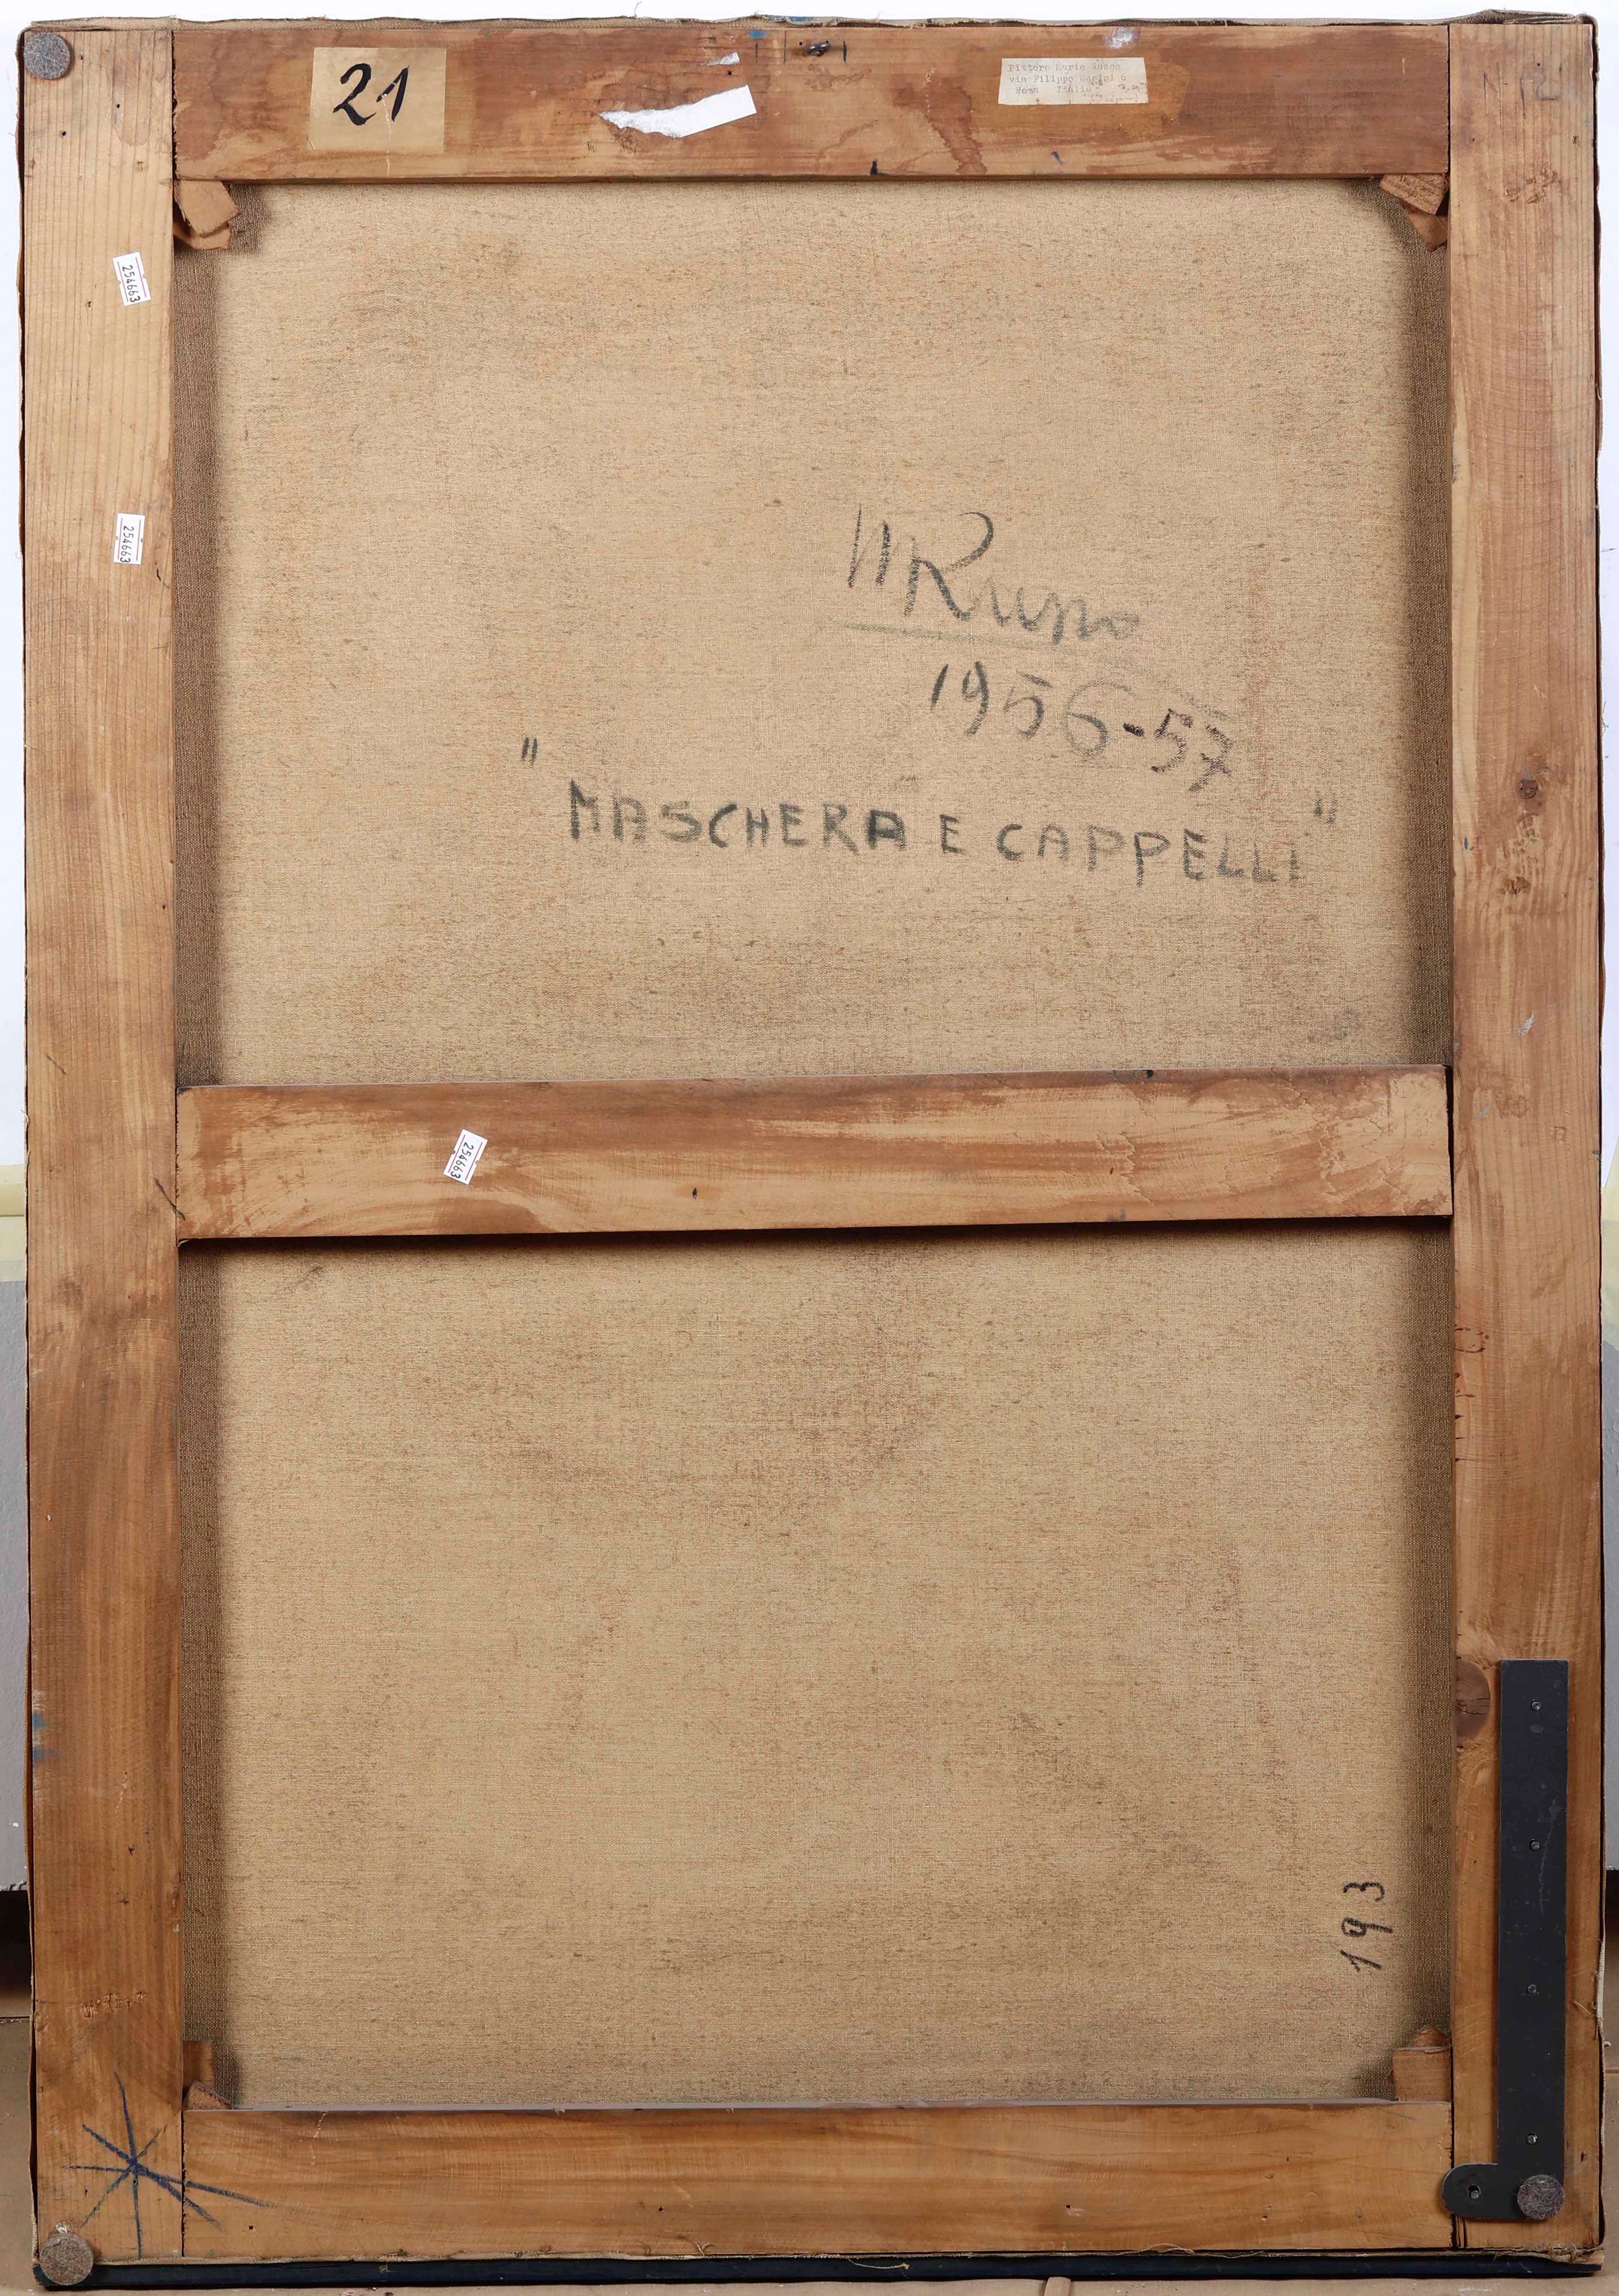 21
Pittore Mario Russo
via Filippo 6
Roma Italia
254663
254663
M Russo
1956-57
"MASCHERA E CAPPELLI"
254663
193